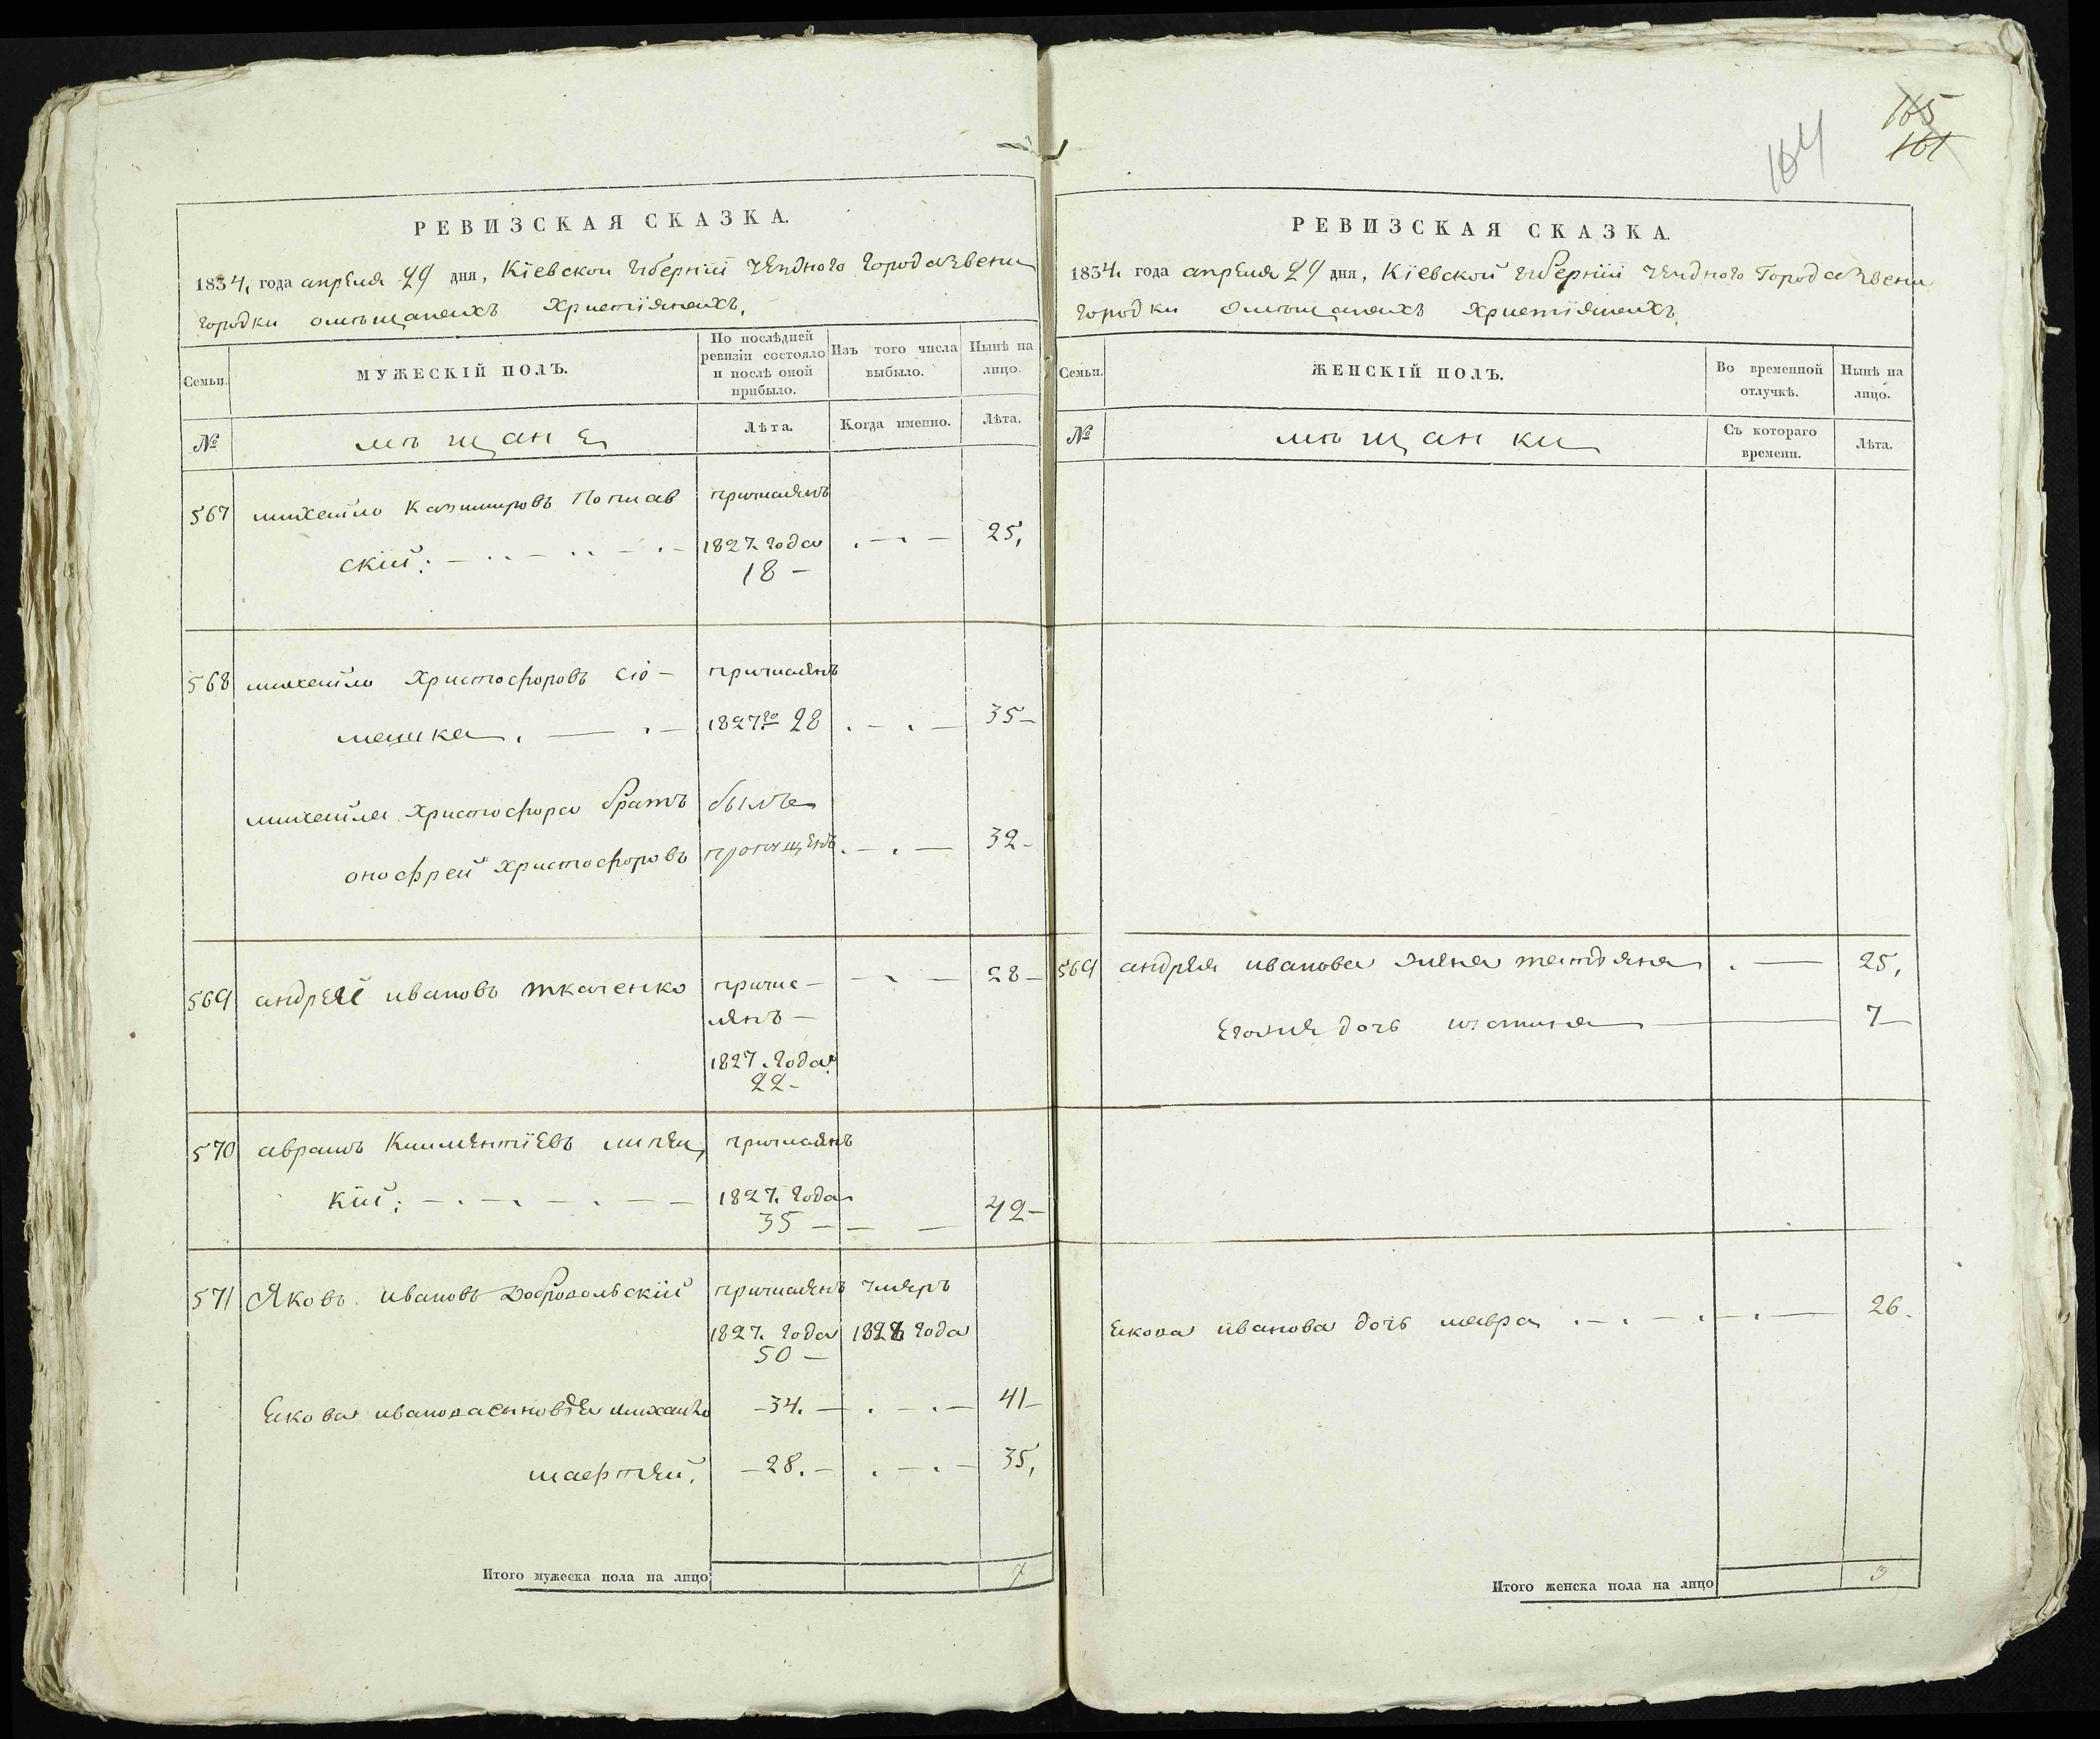 РЕВИЗСКАЯ СКАЗКА.
1834, года апреля 29 дня, Кїевской губернїи уездного города Звени
городки омѣщанахъ христїянахъ,
Семьи. МУЖЕСКІЙ ПОЛЪ. По послѣдней ревизіи состояло и послѣ оной прибыло. Изъ того числа выбыло. Нынѣ на лицо.
№ мѣщане Лѣта. Когда именно. Лѣта.
567 михайло Казимировъ причисленъ
скїй: 1827. года 25,
18
568 михайло Христофоровъ сло- причисленъ
1827го 28 35
михайла Христофора братъ былъ
онофрей Христофоровъ пропущенъ 32
569 андрей ивановъ ткаченко причис- 28
ленъ
1827. года
22
570 аврамъ Климентїевъ липец причисленъ
кїй: 1827. года
35 42
571 Яковъ ивановъ Добровольскїй причисленъ умеръ
1827. года 1828 года
50
Якова иванова сыновья михайло 34. 41
матфей. 28. 35,
Итого мужеска пола на лицо 7
165
161
164
РЕВИЗСКАЯ СКАЗКА.
1834. года апреля 29 дня, Кїевской губернїи уездного города Звени
городки омѣщанахъ христїянахъ,
Семьи. ЖЕНСКІЙ ПОЛЪ. Во временной отлучкѣ. Нынѣ на лицо.
№ мѣщанки Съ котораго времени. Лѣта.
569 андрея иванова жена татьяна 25,
дочь устина 7
Якова иванова дочь мавра 26
Итого женска пола на лицо 3